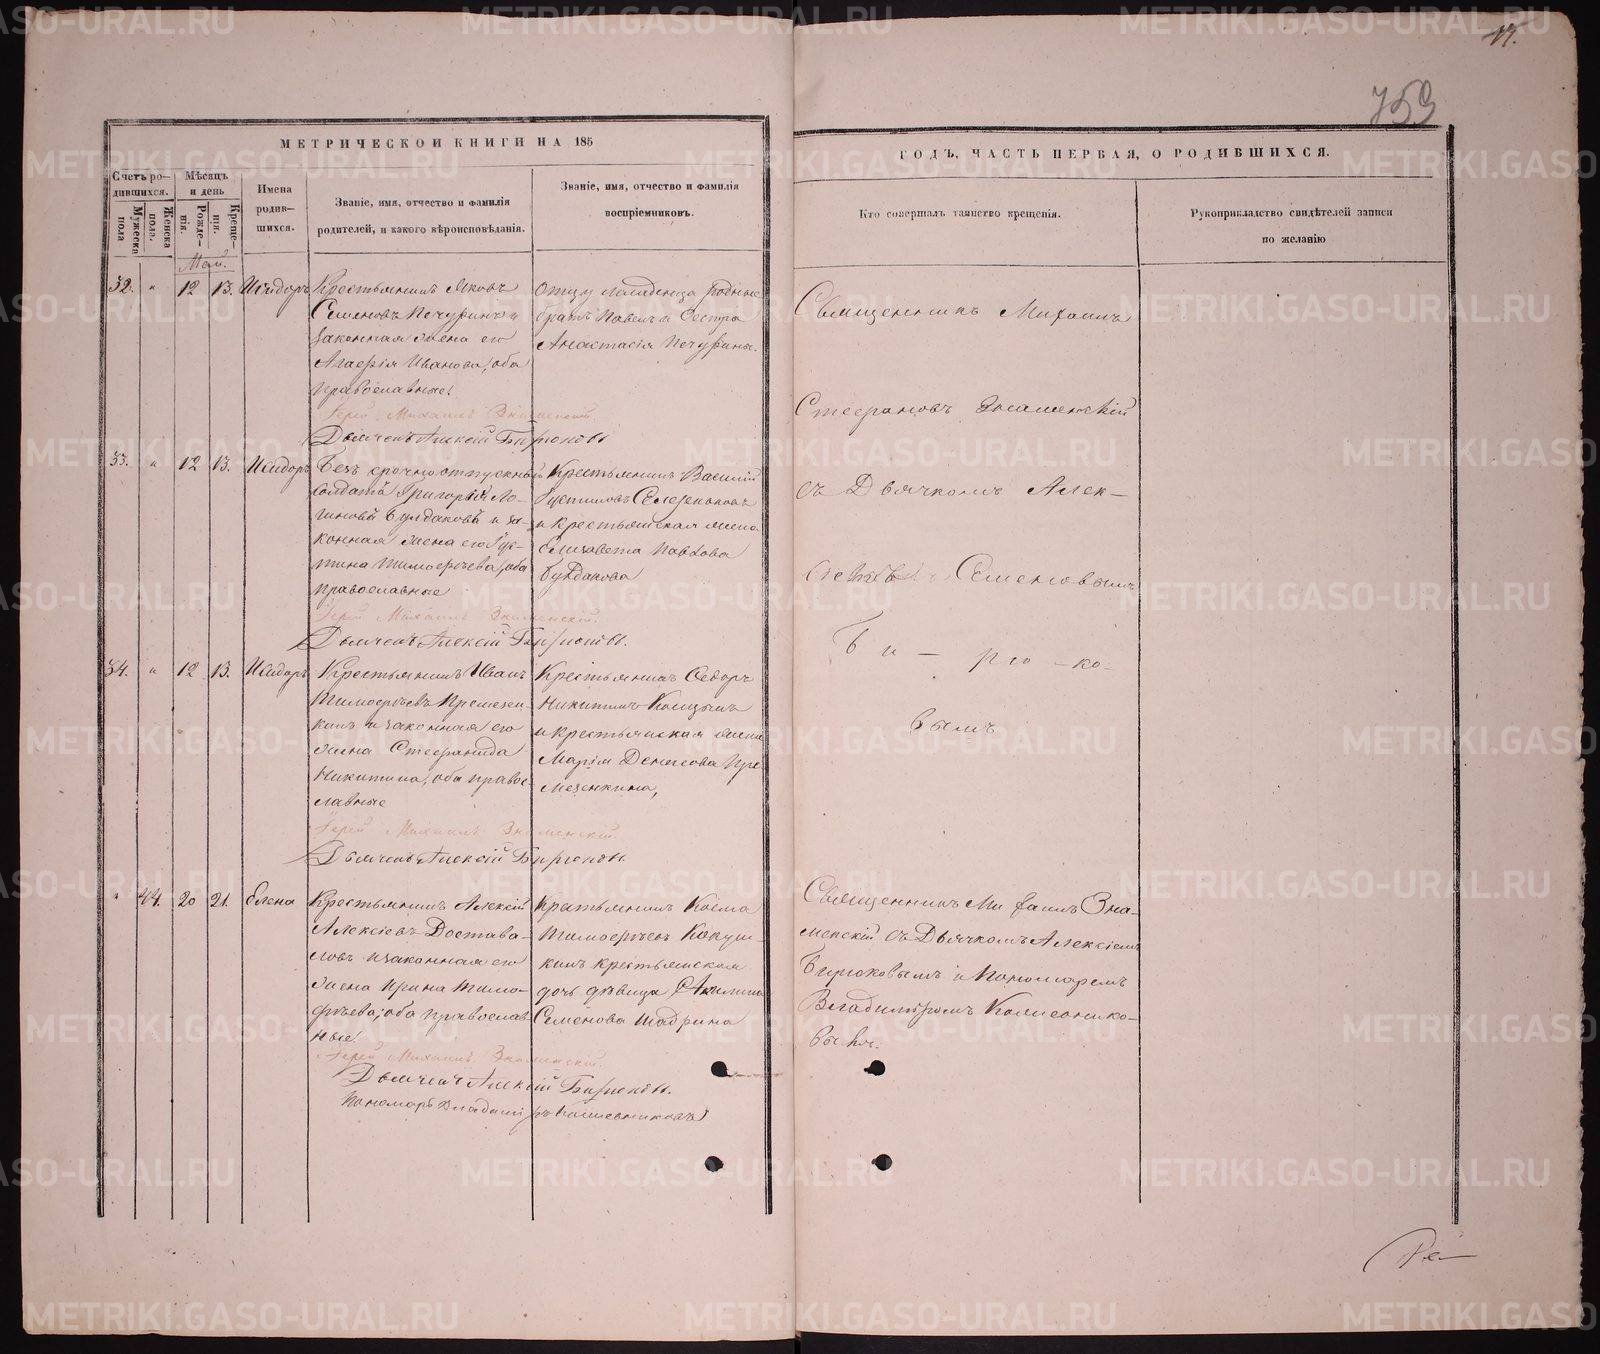 17.
759
МЕТРИЧЕСКОЙ КНИГИ НА 185
ГОДЪ, ЧАСТЬ ПЕРВАЯ, О РОДИВШИХСЯ.
Счетъ ро-
дившихся.
Мужеска
пола
Женска
пола.
Мѣсяцъ
и день
Рожде-
нія.
Креще-
нія.
Имена
родив-
шихся.
Званіе, имя, отчество и фамилія
родителей, и какого вѣроисповѣданія.
Званіе, имя, отчество и фамилія
воспріемниковъ.
Кто совершалъ таинство крещенія.
Рукоприкладство свидѣтелей записи
по желанію
Май.
32. " 12 13. Исидоръ
Крестьянинъ Яковъ
Семеновъ Печуринъ и
законная жена его
Иванова, оба
православные.
Іерей Михаилъ Знаменскій
Дьячекъ Алексій Бирюковъ
отцу младенца родные
братъ Павелъ и Сестра
Анастасія Печурины.
33. " 12 13. Исидоръ
Безсрочноотпускный
солдатъ Григорій Ло-
гиновъ Булдаковъ и за-
конная жена его Гус-
тина Тимофѣева, оба
православные
Іерей Михаилъ Знаменскій.
Дьячекъ Алексій Бирюковъ.
Крестьянинъ Василій
Селезеновъ
и крестьянская жена
Елизавета Павлова
Булдакова
34. " 12 13. Исидоръ
Крестьянинъ Иванъ
Тимофѣевъ Премезен-
кинъ и законная его
жена Стефанида
Никитина, оба правос-
лавные
Іерей Михаилъ Знаменскій.
Дьячекъ Алексій Бирюковъ.
Крестьянинъ Ѳедоръ
Никитинъ
и крестьянская жена
Марія Денисова Пре-
мезенкина,
" 44. 20 21. Елена
Крестьянинъ Алексій
Алексіевъ Достава-
ловъ и законная его
жена Ирина Тимо-
фѣева, оба православ-
ные
Іерей Михаилъ Знаменскій.
Дьячекъ Алексій Бирюковъ.
Пономарь Владиміръ Колисниковъ
Крестьянинъ Косма
Тимофѣевъ Кокуш-
кинъ крестьянская
дочь дѣвица Акилина
Семенова Шадрина
Священникъ Михаилъ
Стефановъ Знаменскій
съ Дьячкомъ Алек-
Семеновымъ
Би-рю-ко-
вымъ
Священникъ Михаилъ Зна-
менскій съ Дьячкомъ Алексіемъ
Бирюковымъ и Пономаремъ
Владиміромъ Колиснико-
вымъ.
METRIKI.GASO-URAL.RU